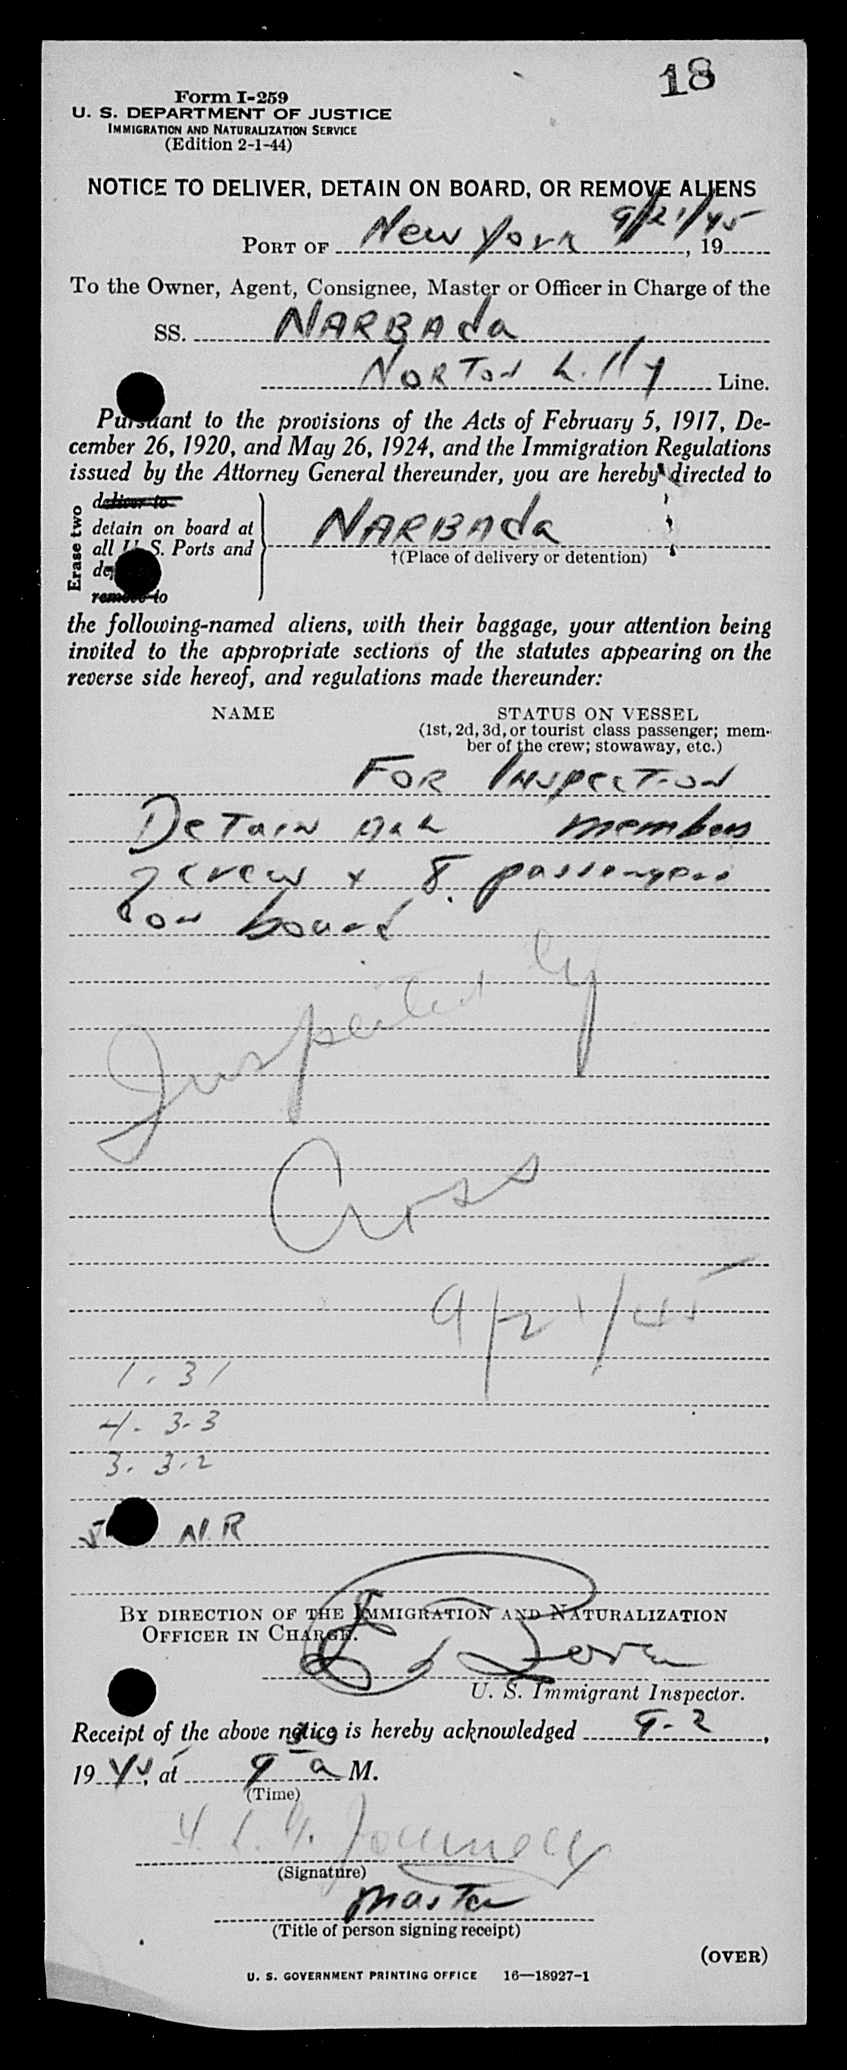 18
Form I-259
U. S. DEPARTMENT OF JUSTICE
IMMIGRATION AND NATURALIZATION SERVICE
(Edition 2-1-44)
NOTICE TO DELIVER, DETAIN ON BOARD, OR REMOVE ALIENS
PORT OF New York 9/21/45, 19
To the Owner, Agent, Consignee, Master or Officer in Charge of the
SS. NARBADA
NORTON Lilly Line.
Pursuant to the provisions of the Acts of February 5, 1917, De-
cember 26, 1920, and May 26, 1924, and the Immigration Regulations
issued by the Attorney General thereunder, you are hereby directed to
Erase two
deliver to
detain on board at
all U. S. Ports and
remove to
NARBADA
†(Place of delivery or detention)
the following-named aliens, with their baggage, your attention being
invited to the appropriate sections of the statutes appearing on the
reverse side hereof, and regulations made thereunder:
NAME STATUS ON VESSEL
(1st, 2d, 3d, or tourist class passenger; mem-
ber of the crew; stowaway, etc.)
FOR INSPECTION
DETAIN ALL members
of crew + 8 passengers
on board
Inspected by
Cross
9/21/45
1. 31
4. 3-3
3. 3-2
N.R
BY DIRECTION OF THE IMMIGRATION AND NATURALIZATION
OFFICER IN CHARGE.
U. S. Immigrant Inspector.
Receipt of the above notice is hereby acknowledged 9-2,
1945, at 9 30 a M.
(Time)
(Signature)
Master
(Title of person signing receipt)
(OVER)
U. S. GOVERNMENT PRINTING OFFICE 16—18927-1